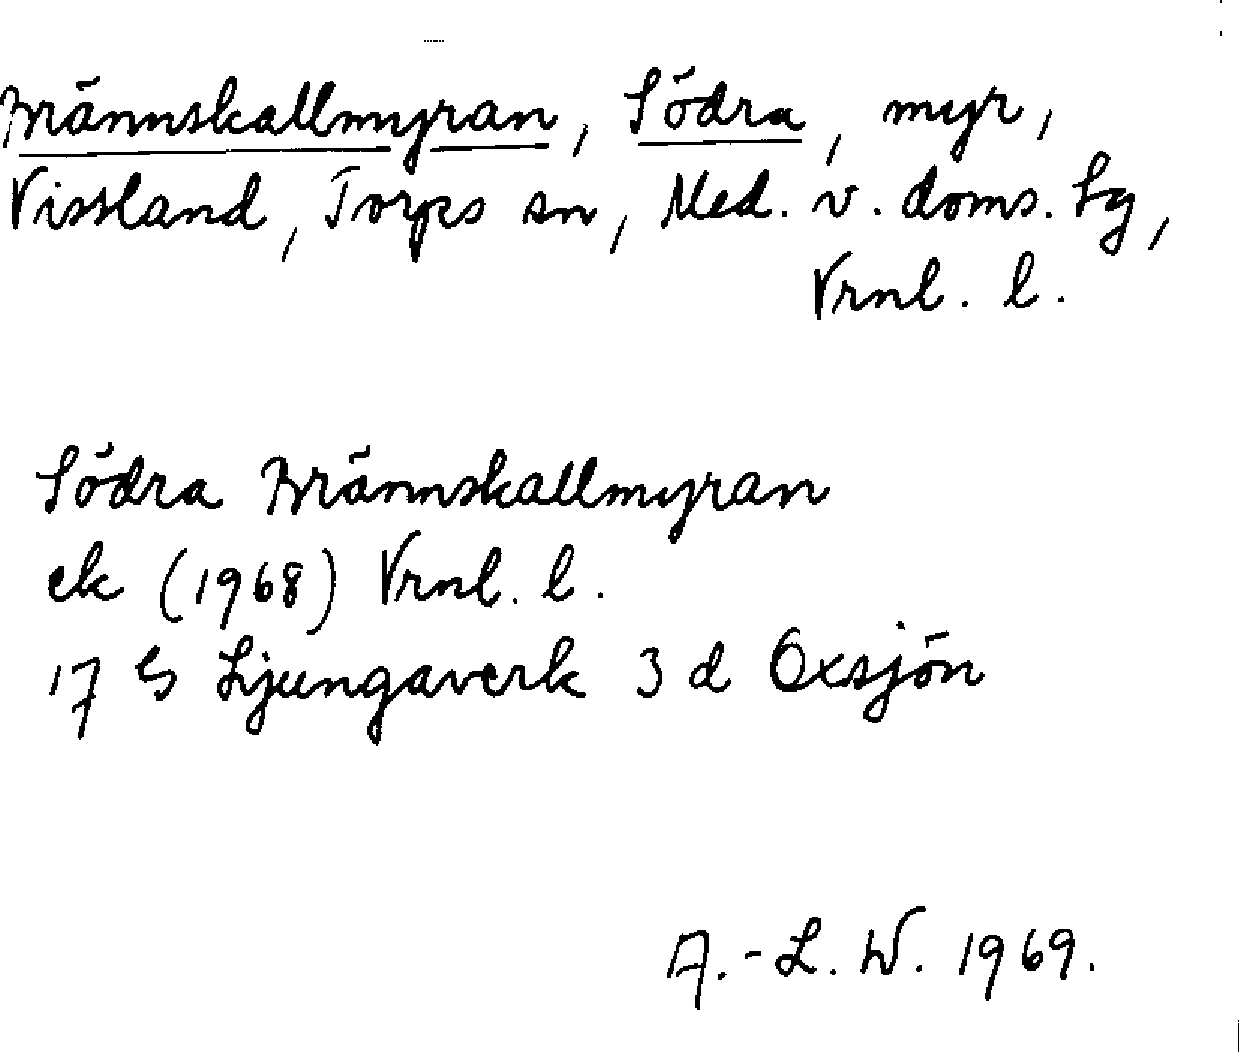 Brännskallmyran, Södra, myr,
Vissland, Torps sn, Med. v. doms. hg,
Vrnl. l.
Södra Brännskallmyran
ek (1968) Vrnl. l.
17 G Ljungaverk 3 d Oxsjön
A.-L. W. 1969.